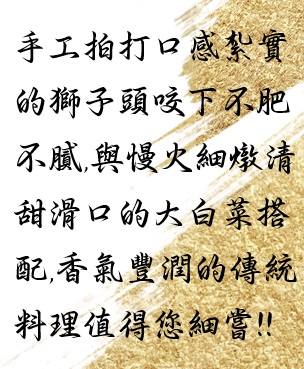 手工拍打口感紮實
的獅子頭咬下不肥
不膩,與慢火細燉清
甜滑口的大白菜搭
配,香氣豐潤的傳統
料理值得您細嘗!!